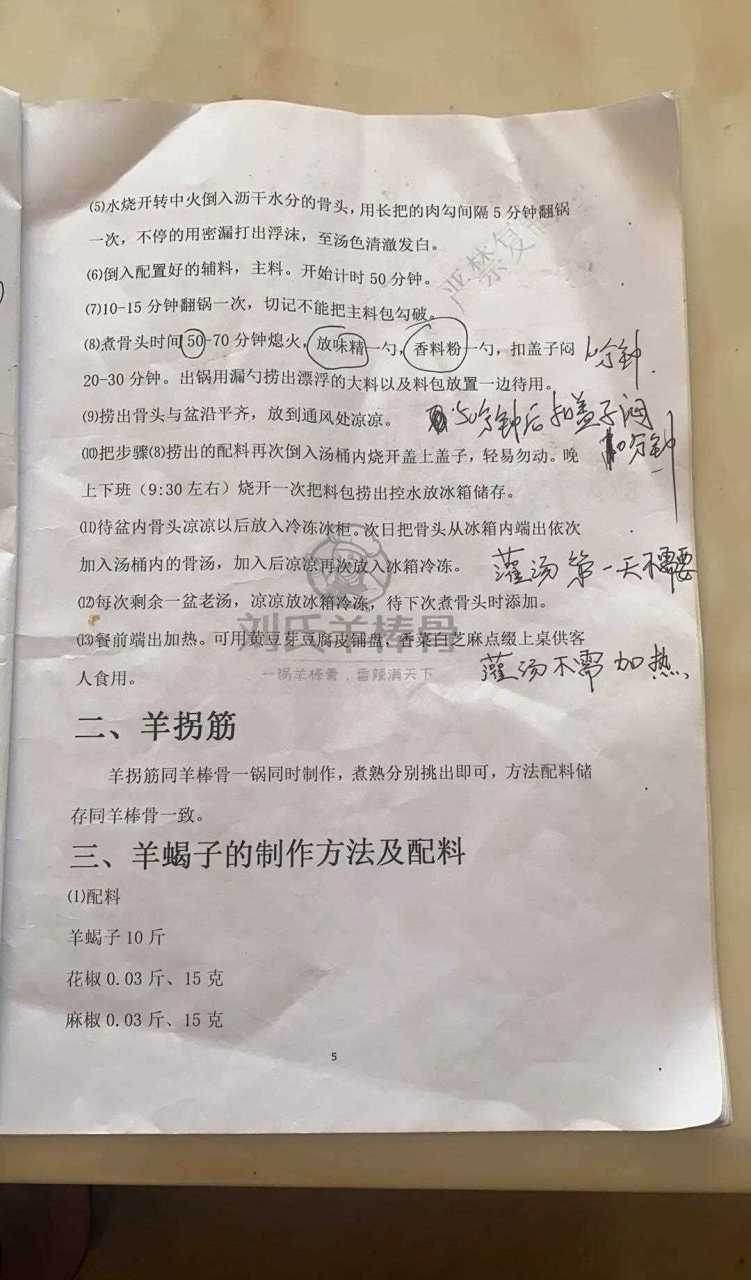 ⑸水烧开转中火倒入沥干水分的骨头，用长把的肉勾间隔 5 分钟翻锅
一次，不停的用密漏打出浮沫，至汤色清澈发白。
严禁复
⑹倒入配置好的辅料，主料。开始计时 50 分钟。
⑺10-15 分钟翻锅一次，切记不能把主料包勾破。
⑻煮骨头时间 50-70 分钟熄火，放味精一勺，香料粉一勺，扣盖子闷
分钟
20-30 分钟。出锅用漏勺捞出漂浮的大料以及料包放置一边待用。
⑼捞出骨头与盆沿平齐，放到通风处凉凉。
50分钟后扣盖子闷
分钟
⑽把步骤⑻捞出的配料再次倒入汤桶内烧开盖上盖子，轻易勿动。晚
上下班（9:30 左右）烧开一次把料包捞出控水放冰箱储存。
⑾待盆内骨头凉凉以后放入冷冻冰柜。次日把骨头从冰箱内端出依次
加入汤桶内的骨汤，加入后凉凉再次放入冰箱冷冻。
灌汤 第一天不需要
⑿每次剩余一盆老汤，凉凉放冰箱冷冻，待下次煮骨头时添加。
刘氏羊棒骨
⒀餐前端出加热。可用黄豆芽豆腐皮铺盘，香菜白芝麻点缀上桌供客
人食用。
一锅羊棒骨，香辣满天下
灌汤不需加热、
二、羊拐筋
羊拐筋同羊棒骨一锅同时制作，煮熟分别挑出即可，方法配料储
存同羊棒骨一致。
三、羊蝎子的制作方法及配料
⑴配料
羊蝎子 10 斤
花椒 0.03 斤、15 克
麻椒 0.03 斤、15 克
5